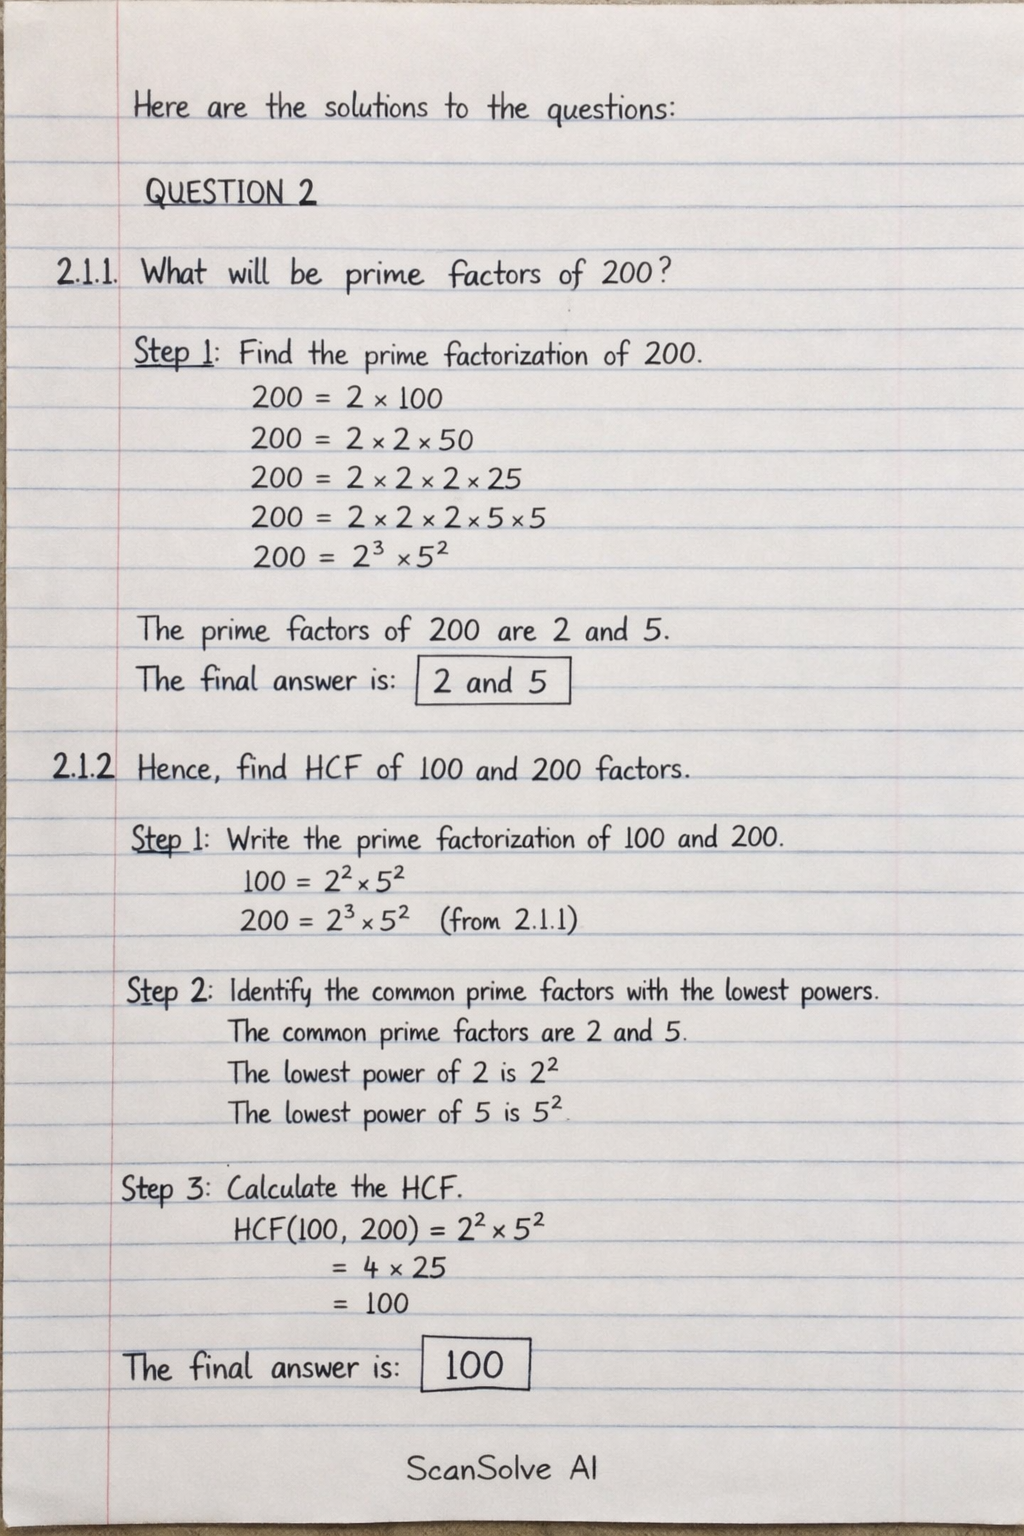 Here are the solutions to the questions:
QUESTION 2
2.1.1. What will be prime factors of 200?
Step 1: Find the prime factorization of 200.
200 = 2 × 100
200 = 2 × 2 × 50
200 = 2 × 2 × 2 × 25
200 = 2 × 2 × 2 × 5 × 5
200 = 2³ × 5²
The prime factors of 200 are 2 and 5.
The final answer is: 2 and 5
2.1.2 Hence, find HCF of 100 and 200 factors.
Step 1: Write the prime factorization of 100 and 200.
100 = 2² × 5²
200 = 2³ × 5² (from 2.1.1)
Step 2: Identify the common prime factors with the lowest powers.
The common prime factors are 2 and 5.
The lowest power of 2 is 2²
The lowest power of 5 is 5².
Step 3: Calculate the HCF.
HCF(100, 200) = 2² × 5²
= 4 × 25
= 100
The final answer is: 100
ScanSolve AI